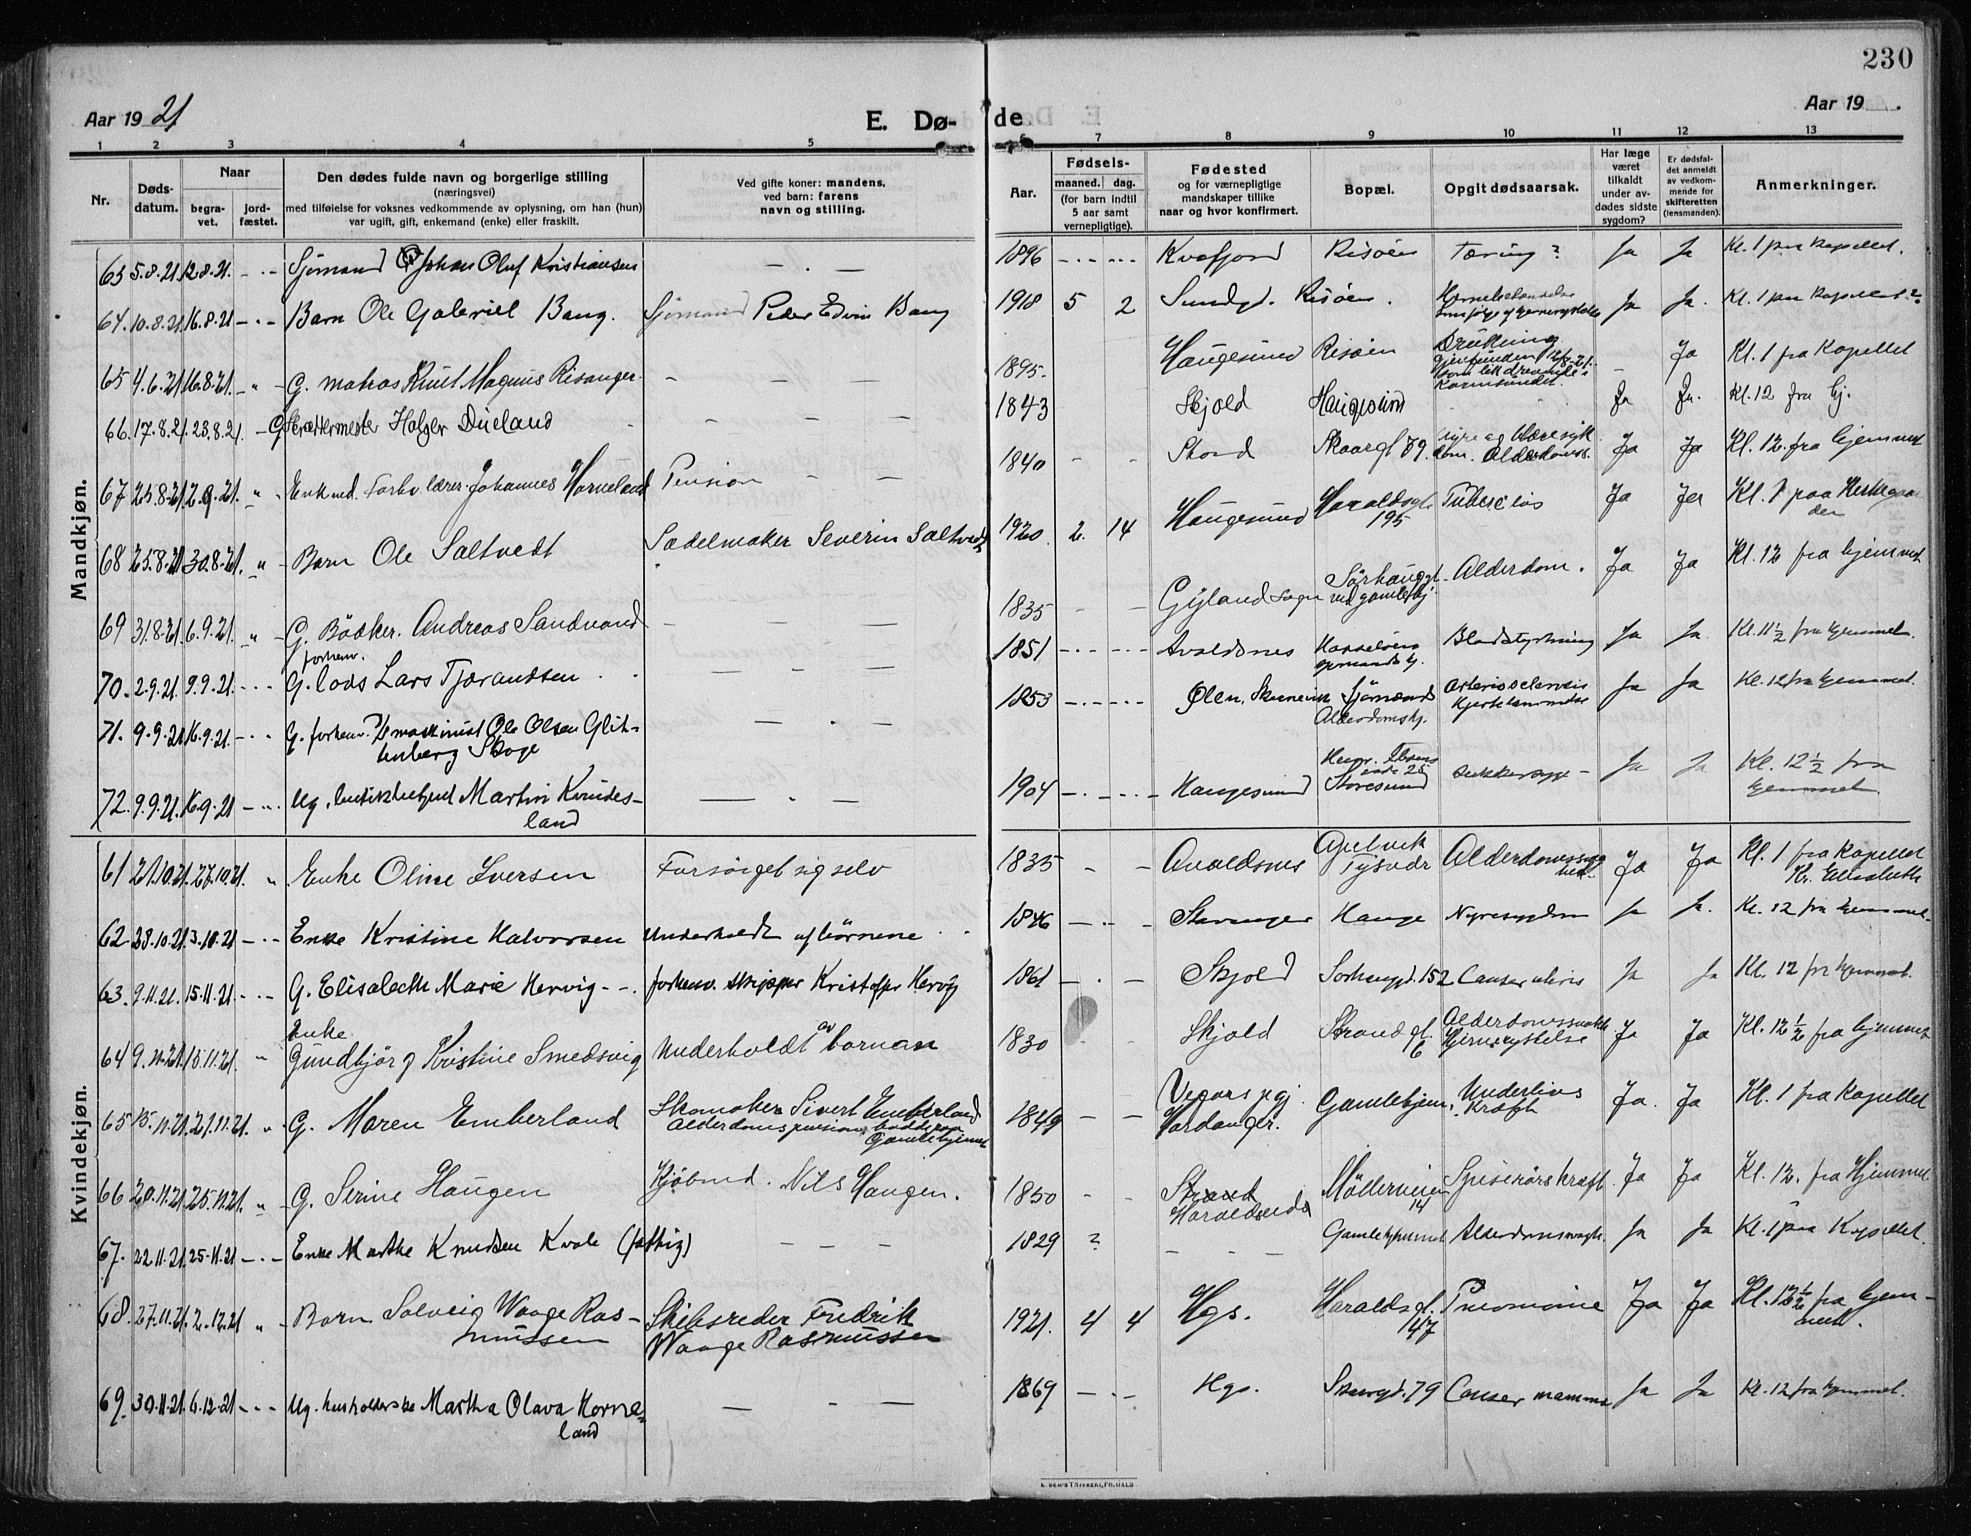 230
Aar 1921
E. Dø-
de
Aar 19
1 2 3 4 5 6 7 8 9 10 11 12 13
Nr.
Døds-
datum.
Naar
begra-
vet.
jord-
fæstet.
Den dødes fulde navn og borgerlige stilling
(næringsvei)
med tilføielse for voksnes vedkommende av oplysning, om han (hun)
var ugift, gift, enkemand (enke) eller fraskilt.
Ved gifte koner: mandens,
ved barn: farens
navn og stilling.
Aar.
Fødsels-
maaned. dag.
(for barn indtil
5 aar samt
vernepligtige).
Fødested
og for værnepligtige
mandskaper tillike
naar og hvor konfirmert.
Bopæl.
Opgit dødsaarsak.
Har læge
været
tilkaldt
under av-
dødes sidste
sygdom?
Er dødsfal-
det anmeldt
av vedkom-
mende for
skifteretten
(lensmanden).
Anmerkninger.
Mandkjøn.
63 5.8.21 12.8.21. Sjømand Johan Oluf Kristiansen 1896 Kvæfjord Risøen Tæring? Ja Ja Kl. 1 paa Kapellet.
64. 10.8.21 16.8.21 Barn Ole Gabriel Bang. Sjømand Peder Edvin Bang 1918 5 2 Sundgt. Risøen. Ja Ja. Kl. 1 paa Kapellet
65 4.6.21 16.8.21. G. matros Knut Magnus Risanger 1895. Haugesund Risøen Drukning Ja Kl. 1 fra Kapellet
66. 17.8.21. 23.8.21. G. Skræddermester Holger Dueland 1843 Skjold Haugesund Ja Ja. Kl. 12 fra hj.
67 25.8.21 2.9.21. Enkemd. Forhv. lærer Johannes Horneland Pension 1840 Stord Skaaregt 79. Ja Ja Kl. 12 fra hjemmet
68 25.8.21 30.8.21. Barn Ole Saltvedt Sadelmaker Severin Saltvedt 1920. 2. 14 Haugesund Haraldsgt.
195 Ja Ja Kl. 1 paa Kirkegaar
den
69 31.8.21. 6.9.21. G. Bödker. Andreas Sandvand 1835 Gyland Sogn Sørhauggt.
ved gamlehj. Alderdom. Ja Ja Kl. 12 fra hjemmet
70. 2.9.21. 9.9.21. G. forhenv. lods Lars Tjærandsen 1851 Avaldsnes Ja Ja. Kl. 11½ fra hjemmet.
71. 9.9.21. 16.9.21. G. forhenv. maskinist Ole Olsen Glit-
tenberg Skoge 1853 Ølen, Sjømænds
Alderdomshj. Arteriosclerosis Ja Ja Kl. 12 fra hjemmet.
72. 9.9.21. 16.9.21 Ug. Martin Kvindes-
land 1904 Haugesund Storesund sukkersyge Ja Ja Kl. 12½ fra
hjemmet.
Kvindekjøn.
61 21.10.21. 27.10.21. Enke Oline Iversen Forsørget sig selv 1835 Avaldsnes Apelvik
Tysvær Ja Ja Kl. 1 fra Kapellet
62 28.10.21 3.10.21 Enke Kristine Halvorsen Underholdt af børnene 1846 Stavanger Hauge Nyresygdom Ja Ja. Kl. 12 fra hjemmet.
63. 9.11.21. 15.11.21 G. Elisabeth Marie Hervig forhenv. skipper Kristoffer Hervig 1861 Skjold Sørhauggt. 152 Cancer uteris Ja Ja Kl. 12 fra hjemmet.
64 9.11.21. 15.11.21. Enke
Gundbjørg Kristine Smedsvig Underholdt av bornan 1830 Skjold Strandgt.
6 Ja Ja Kl. 12½ fra hjemmet
65 15.11.21. 21.11.21. G. Maren Emberland Skomaker Sivert Emberland
Alderdomspension
Gamlehjemmet 1849
Hardanger. Gamlehjem. Underlivs
Kræft Ja. Ja Kl. 1 fra Kapellet
66 20.11.21. 25.11.21. G. Serine Haugen Kjøbmd. Nils Haugen. 1850 Strand
Haraldseid Möllerveien
14 Spiserörskræft. Ja Ja Kl. 12. fra Hjemmet
67. 22.11.21 25.11.21 Enke Marthe Knudsen Kvale (fattig) 1829 ? Gamlehjemmet Ja Ja Kl. 1 paa Kapellet.
68. 27.11.21. 2.12.21 Barn Solveig Waage Ras-
mussen Skibsreder Fredrik
Waage Rasmussen 1921. 4 4 Hgs. Haraldsgt.
147 Pneumonie Ja Ja Kl. 12½ fra hjem-
met.
69. 30.11.21. 6.12.21 Ug. husholderske Martha Olava Horne-
land 1869 Hgs. 79 Cancer mamma Ja Ja Kl. 12 fra hjemmet.